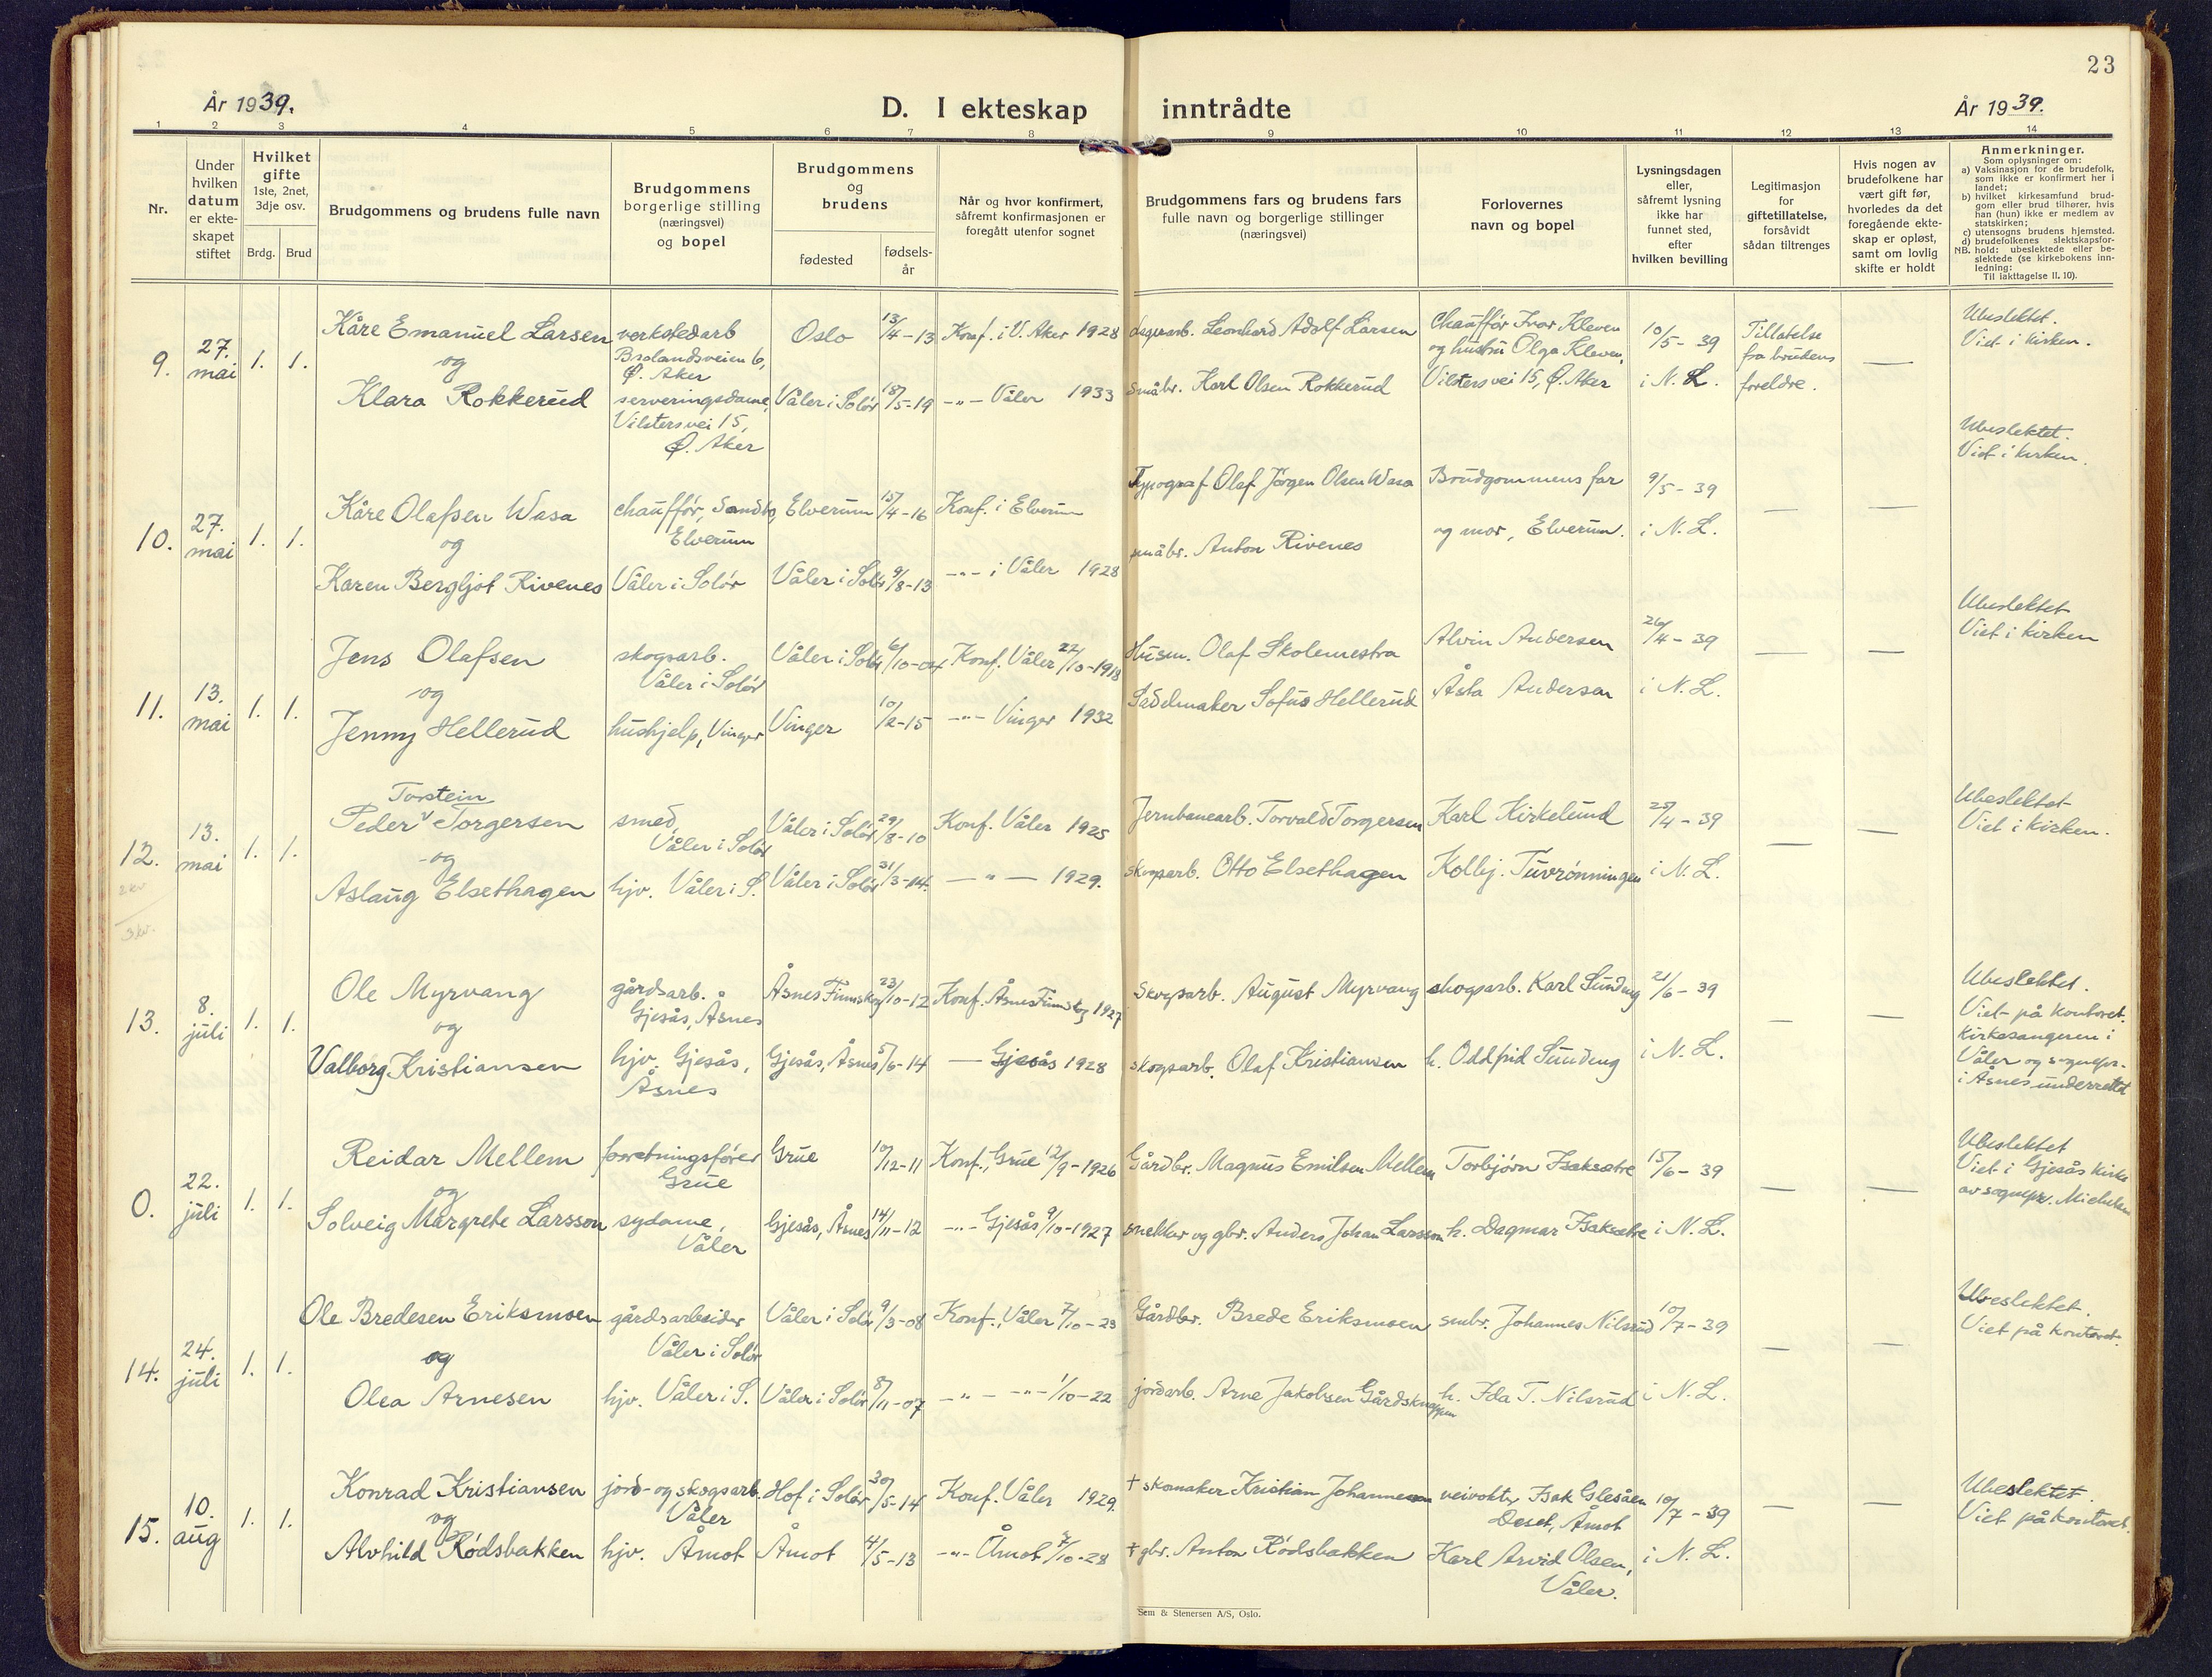 23
År 1939.
D. I ekteskap inntrådte
År 1939.
1 2 3 4 5 6 7 8 9 10 11 12 13 14
Nr.
Under hvilken datum er ekte-skapet stiftet
Hvilket gifte
1ste, 2net, 3dje osv.
Brdg. Brud
Brudgommens og brudens fulle navn
Brudgommens borgerlige stilling (næringsvei) og bopel
Brudgommens og brudens
fødested
fødsels-år
Når og hvor konfirmert, såfremt konfirmasjonen er foregått utenfor sognet
Brudgommens fars og brudens fars fulle navn og borgerlige stillinger (næringsvei)
Forlovernes navn og bopel
Lysningsdagen eller, såfremt lysning ikke har funnet sted, efter hvilken bevilling
Legitimasjon for giftetillatelse, forsåvidt sådan tiltrenges
Hvis nogen av brudefolkene har vært gift før, hvorledes da det foregående ekte-skap er opløst, samt om lovlig skifte er holdt
Anmerkninger.
Som oplysninger om:
a) Vaksinasjon for de brudefolk, som ikke er konfirmert her i landet;
b) hvilket kirkesamfund brud-gom eller brud tilhører, hvis han (hun) ikke er medlem av statskirken;
c) utensogns brudens hjemsted.
d) brudefolkenes slektskapsfor-
NB. hold: ubeslektede eller be-slektede (se kirkebokens inn-ledning:
Til iakttagelse II. 10).
9. 27. mai 1. 1.
Kåre Emanuel Larsen verkstedarb Oslo 13/4-13 Konf. i V. Aker 1928 Lagerarb. Leonhard Adolf Larsen Chauffør Ivar Kleven 10/5-39 Tillatelse Ubeslektet.
og Brolandsveien 6, Ø. Aker og hustru Olga Kleven, fra brudens — Viet i kirken.
Klara Rokkerud serveringsdame, Våler i Solør 18/5-19 -"- Våler 1933 småbr. Karl Olsen Rokkerud Vilstersvei 15, Ø. Aker i N. L. foreldre.
Vilstersvei 15,
Ø. Aker
10. 27. mai 1. 1.
Kåre Olafsen Wasa chauffør, Sandbo, Elverum 15/4-16 Konf. i Elverum Typograf Olaf Jørgen Olsen Wasa Brudgommens far 9/5-39 — — Ubeslektet.
og Elverum og mor, Elverum. i N. L. Viet i kirken.
Karen Bergljot Rivenes Våler i Solør Våler i Solør 9/8-13 -"- i Våler 1928 småbr. Anton Rivenes
11. 13. mai 1. 1.
Jens Olafsen skogsarb. Våler i Solør 6/10-04 Konf. Våler 22/10-1918 Husm. Olaf Skolemestra Alvin Andersen 26/4-39 — — Ubeslektet
og Våler i Solør Viet i kirken
Jenny Hellerud hushjelp, Vinger Vinger 10/2-15 -"- Vinger 1932 Sadelmaker Sofus Hellerud Åsta Andersen i N. L.
12. 13. mai 1. 1.
2 kv
3 kv.
Torstein
Peder v Torgersen smed, Våler i Solør 29/8-10 Konf. Våler 1925 Jernbanearb. Torvald Torgersen Karl Kirkelund 25/4-39 — — Ubeslektet
og Våler i Solør Viet i kirken.
Aslaug Elsethagen hjv. Våler i S. Våler i Solør 31/3-14. — " — 1929. skogsarb. Otto Elsethagen Kolbj. Tuvrønningen i N. L.
13. 8. juli 1. 1.
Ole Myrvang gårdsarb. Åsnes Finnskog 23/10-12 Konf. Åsnes Finnskog 1927 Skogsarb. August Myrvang skogsarb. Karl Sundeng 21/6-39 — — Ubeslektet.
og Gjesås, Åsnes Viet på kontoret.
Valborg Kristiansen hjv. Gjesås, Gjesås, Åsnes 5/6-14 — Gjesås 1928 skogsarb. Olaf Kristiansen h. Oddfrid Sundeng i N. L. Kirkesangeren i
Åsnes Våler og sognepr.
i Åsnes underrettet
0. 22. juli 1. 1.
Reidar Mellem forretningsfører Grue 10/12-11 Konf., Grue 12/9-1926 Gårdbr. Magnus Emilsen Mellem Torbjørn Isaksætre 15/6-39 — — Ubeslektet
og Grue Viet i Gjesås kirke
Solveig Margrete Larsson sydame, Gjesås, Åsnes 14/11-12 -"- Gjesås 9/10-1927 snekker og gbr. Anders Johan Larsson h. Dagmar Isaksætre i N. L. av sognepr.
Våler
14. 24. juli 1. 1.
Ole Bredesen Eriksmoen gårdsarbeider Våler i Solør 9/3-08 Konf., Våler 7/10-23 Gårdbr. Brede Eriksmoen smbr. Johannes Nilsrud 10/7-39 — — Ubeslektet.
og Våler i Solør Viet på kontoret.
Olea Arnesen hjv. Våler i S. Våler i Solør 8/11-07 -"- -"- 1/10-22 jordarb. Arne Jakobsen Gårdskneppen h. Ida T. Nilsrud i N. L.
15. 10. aug 1. 1.
Konrad Kristiansen jord- og skogsarb. Hof i Solør 30/5-14 Konf. Våler 1929. + skomaker Kristian Johannesen veivokter Isak Glesåen 10/7-39 — — Ubeslektet.
og Våler Deset, Åmot Viet på kontoret.
Alvhild Rødsbakken hjv. Åmot Åmot 4/5-13 -"- Åmot 7/10-28 + gbr. Anton Rødsbakken Karl Arvid Olsen, i N. L.
Våler.
Sem & Stenersen A/S, Oslo.